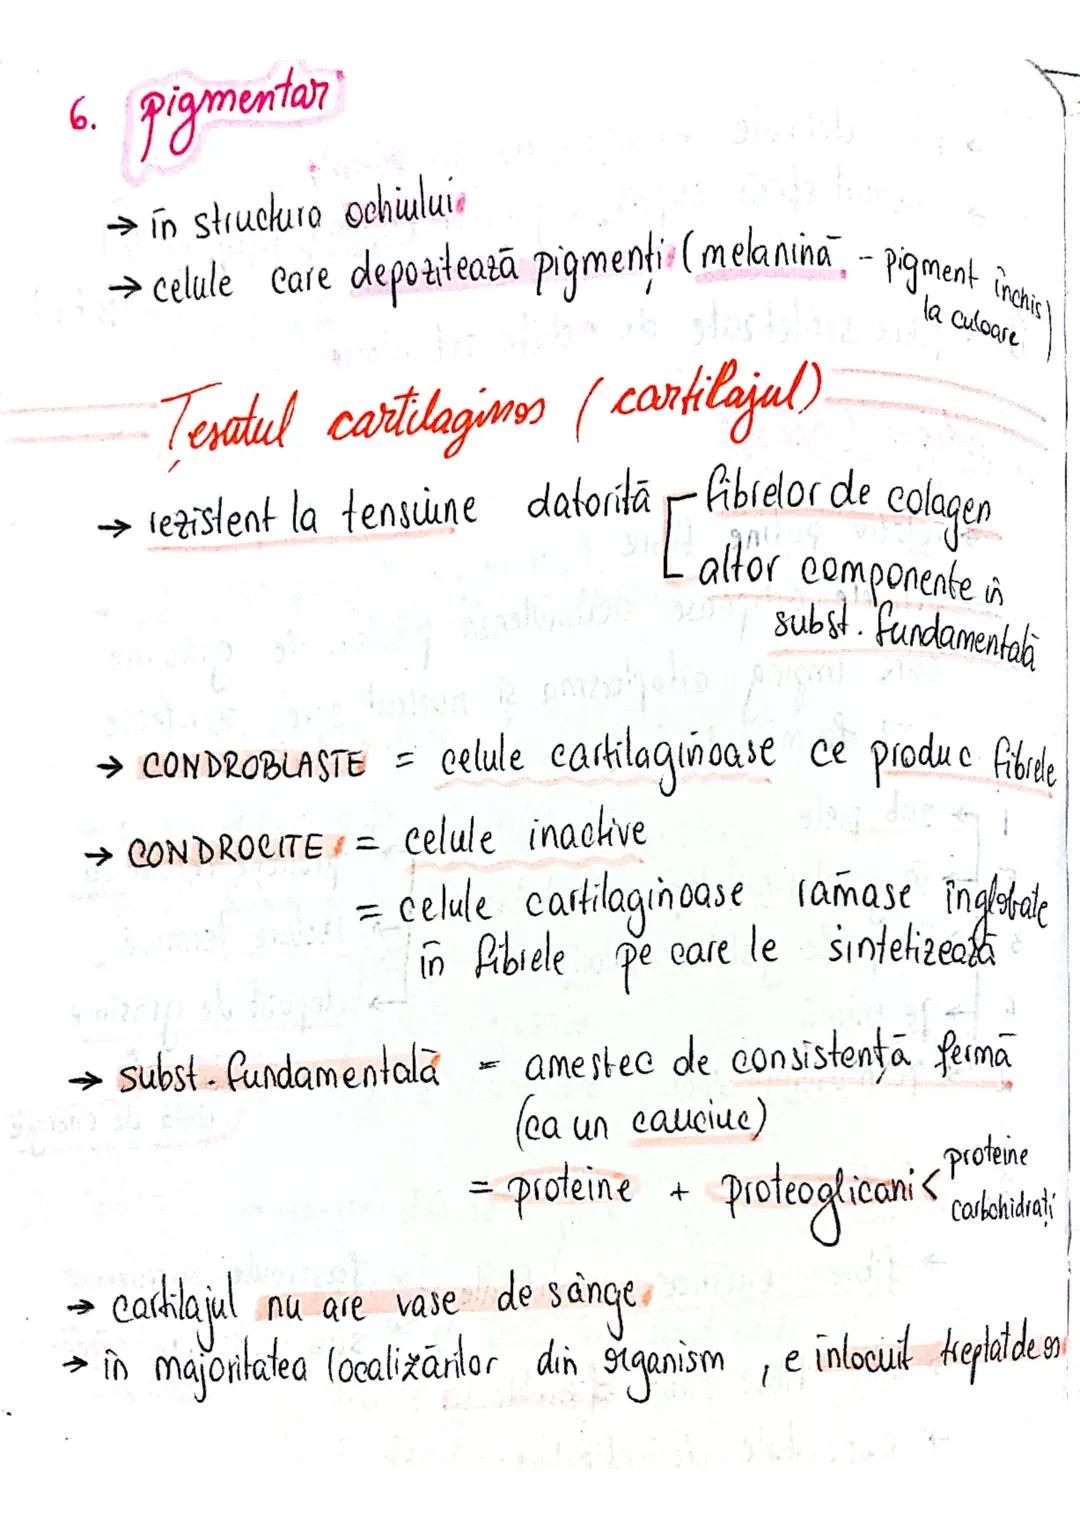 6. pigmentar
→ în structura ochiului
→ celule care depozitează pigmenți (melanină - pigment închis
la culoare)
Țesatul cartilaginos (cartilajul)
→ rezistent la tensiune datorită fibrelor de colagen
altor componente în
subst. fundamentală
→ CONDROBLASTE = celule cartilaginoase ce produc fibrele
→ CONDROCITE = celule inactive
= celule cartilaginoase rămase înglobate
în fibrele pe care le sintetizează
→ subst. fundamentală = amestec de consistență fermă
(ca un cauciuc)
= proteine + proteoglicani < proteine
carbohidrați
→ cartilajul nu are vase de sânge
→ în majoritatea localizărilor din organism, e înlocuit treptat de os